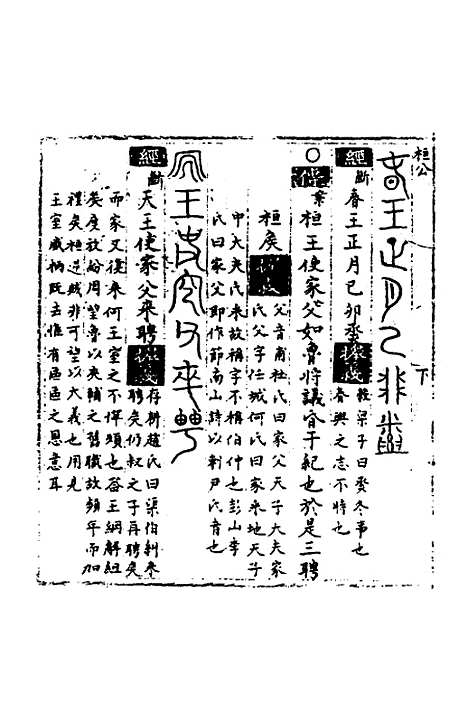 桓公
下
春王正月己卯烝
經斷
春王正月己卯烝
穀梁子曰烝冬事也
春興之志不時也
○
桓王使家父如魯將議昏于紀也於是三聘
桓矣
父音甫杜氏曰家父天子大夫家
氏父字任城何氏曰家采地天子
中大夫氏采故稱字不稱伯仲也彭山季
氏曰家父即作節南山詩以刺尹氏者也
天王使家父來聘
經斷
天王使家父來聘
存耕趙氏曰渠伯糾來
聘矣仍叔之子再聘矣
而家父復來何王室之不憚煩也蓋王綱解紐
矣度政紛用望魯以夾輔之舊職故頻年而加
禮焉桓逆賊非可望以大義也用見
王室威柄既去惟有區區之恩意耳